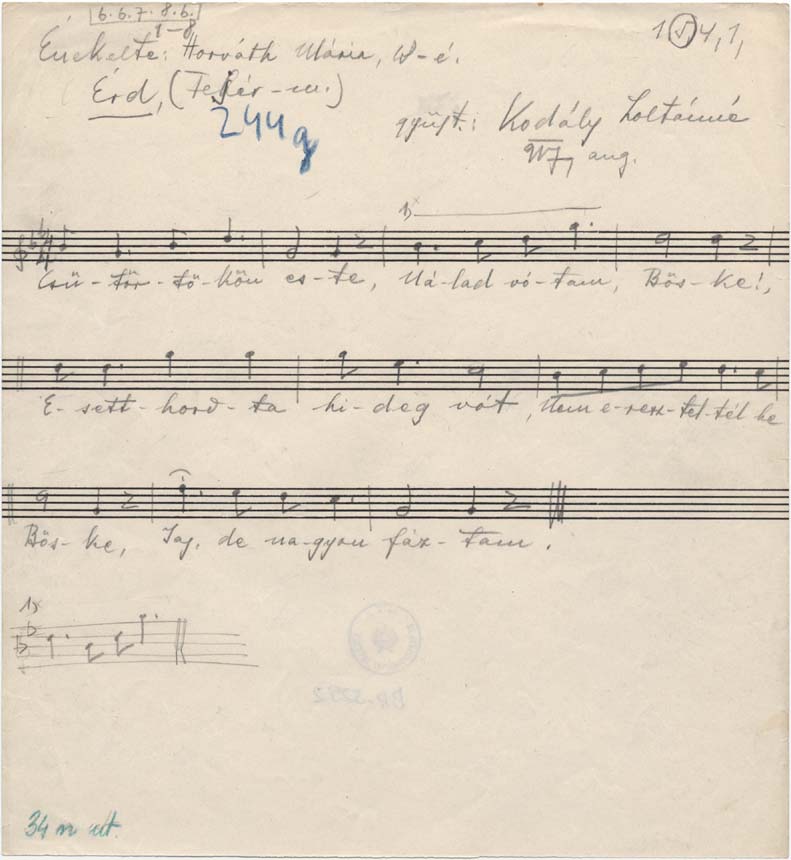 6. 6. 7. 8. 6.
1–8
1 5, 4, 1,
Énekelte: Horváth Mária, 18-é.
Érd, (Fejér-m.)
244g
gyűjt.: Kodály Zoltánné
aug.
1x
Csü-tör-tö-kön es-te, Ná-lad vó-tam, Bös-ke!,
E-sett hord-ta hi-deg vót, Nem e-resz-tet-tél be
Bös-ke, Jaj, de na-gyon fáz-tam.
1x
BR-
34